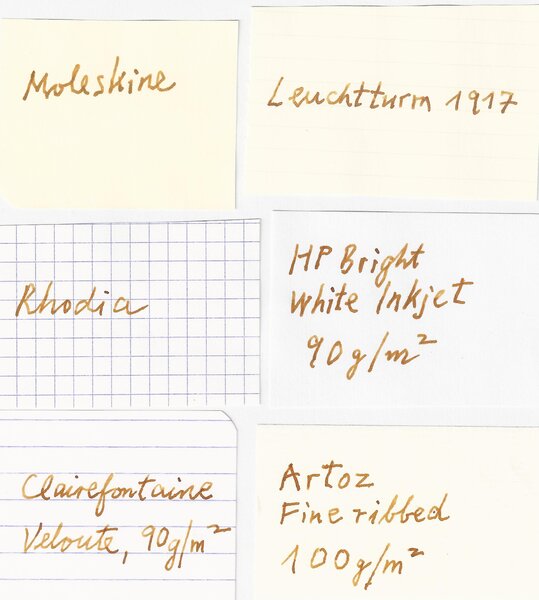 Moleskine
Leuchtturm 1917
Rhodia
HP Bright
White Inkjet
90g/m²
Clairefontaine
Veloute, 90g/m²
Artoz
Fine ribbed
100g/m²